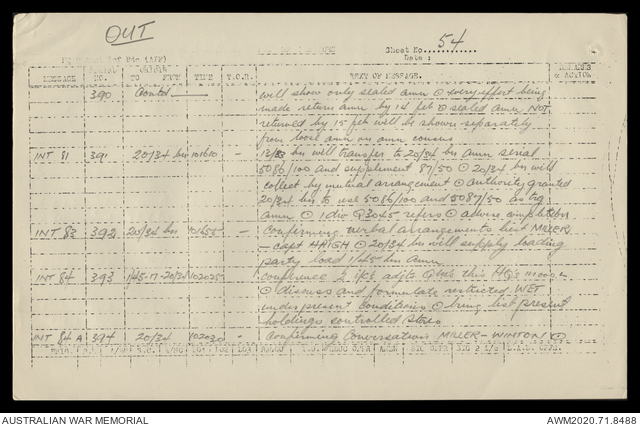 OUT
Sheet No. 54
Date :
(AIF)
MESSAGE NO. TO FROM TIME T.O.R. TEXT OF MESSAGE. & ACTION.
390 Contd
will show only sealed amn ⊙ every effort being
made return amn by 14 feb ⊙ sealed amn NOT
returned by 15 feb will be shown separately
from loose amn on amn census
INT 81 391 20/34 bn 101610 - 13/33 bn will transfer to 20/34 bn amn serial
5086/100 and supplement 87/50 ⊙ 20/34 bn will
collect by mutual arrangement ⊙ authority granted
20/34 bn to use 5086/100 and 5087/50 as trg
amn ⊙ 1 div Q3045 refers ⊙ advise completion
INT 83 392 20/34 bn 101655 - Confirming verbal arrangements lieut MILLER
- capt HAIGH ⊙ 20/34 bn will supply loading
party load 1/45 bn amn
INT 84 393 1/45-17-20/34 102025 conference 2 i/c's adjts QMs this HQ
⊙ discuss and formulate restricted WET
under present conditions ⊙ bring list present
holdings controlled stores
INT 84 A 394 20/34 102030 - Confirming Conversations MILLER - WINTON ⊙
AUSTRALIAN WAR MEMORIAL
AWM2020.71.8488